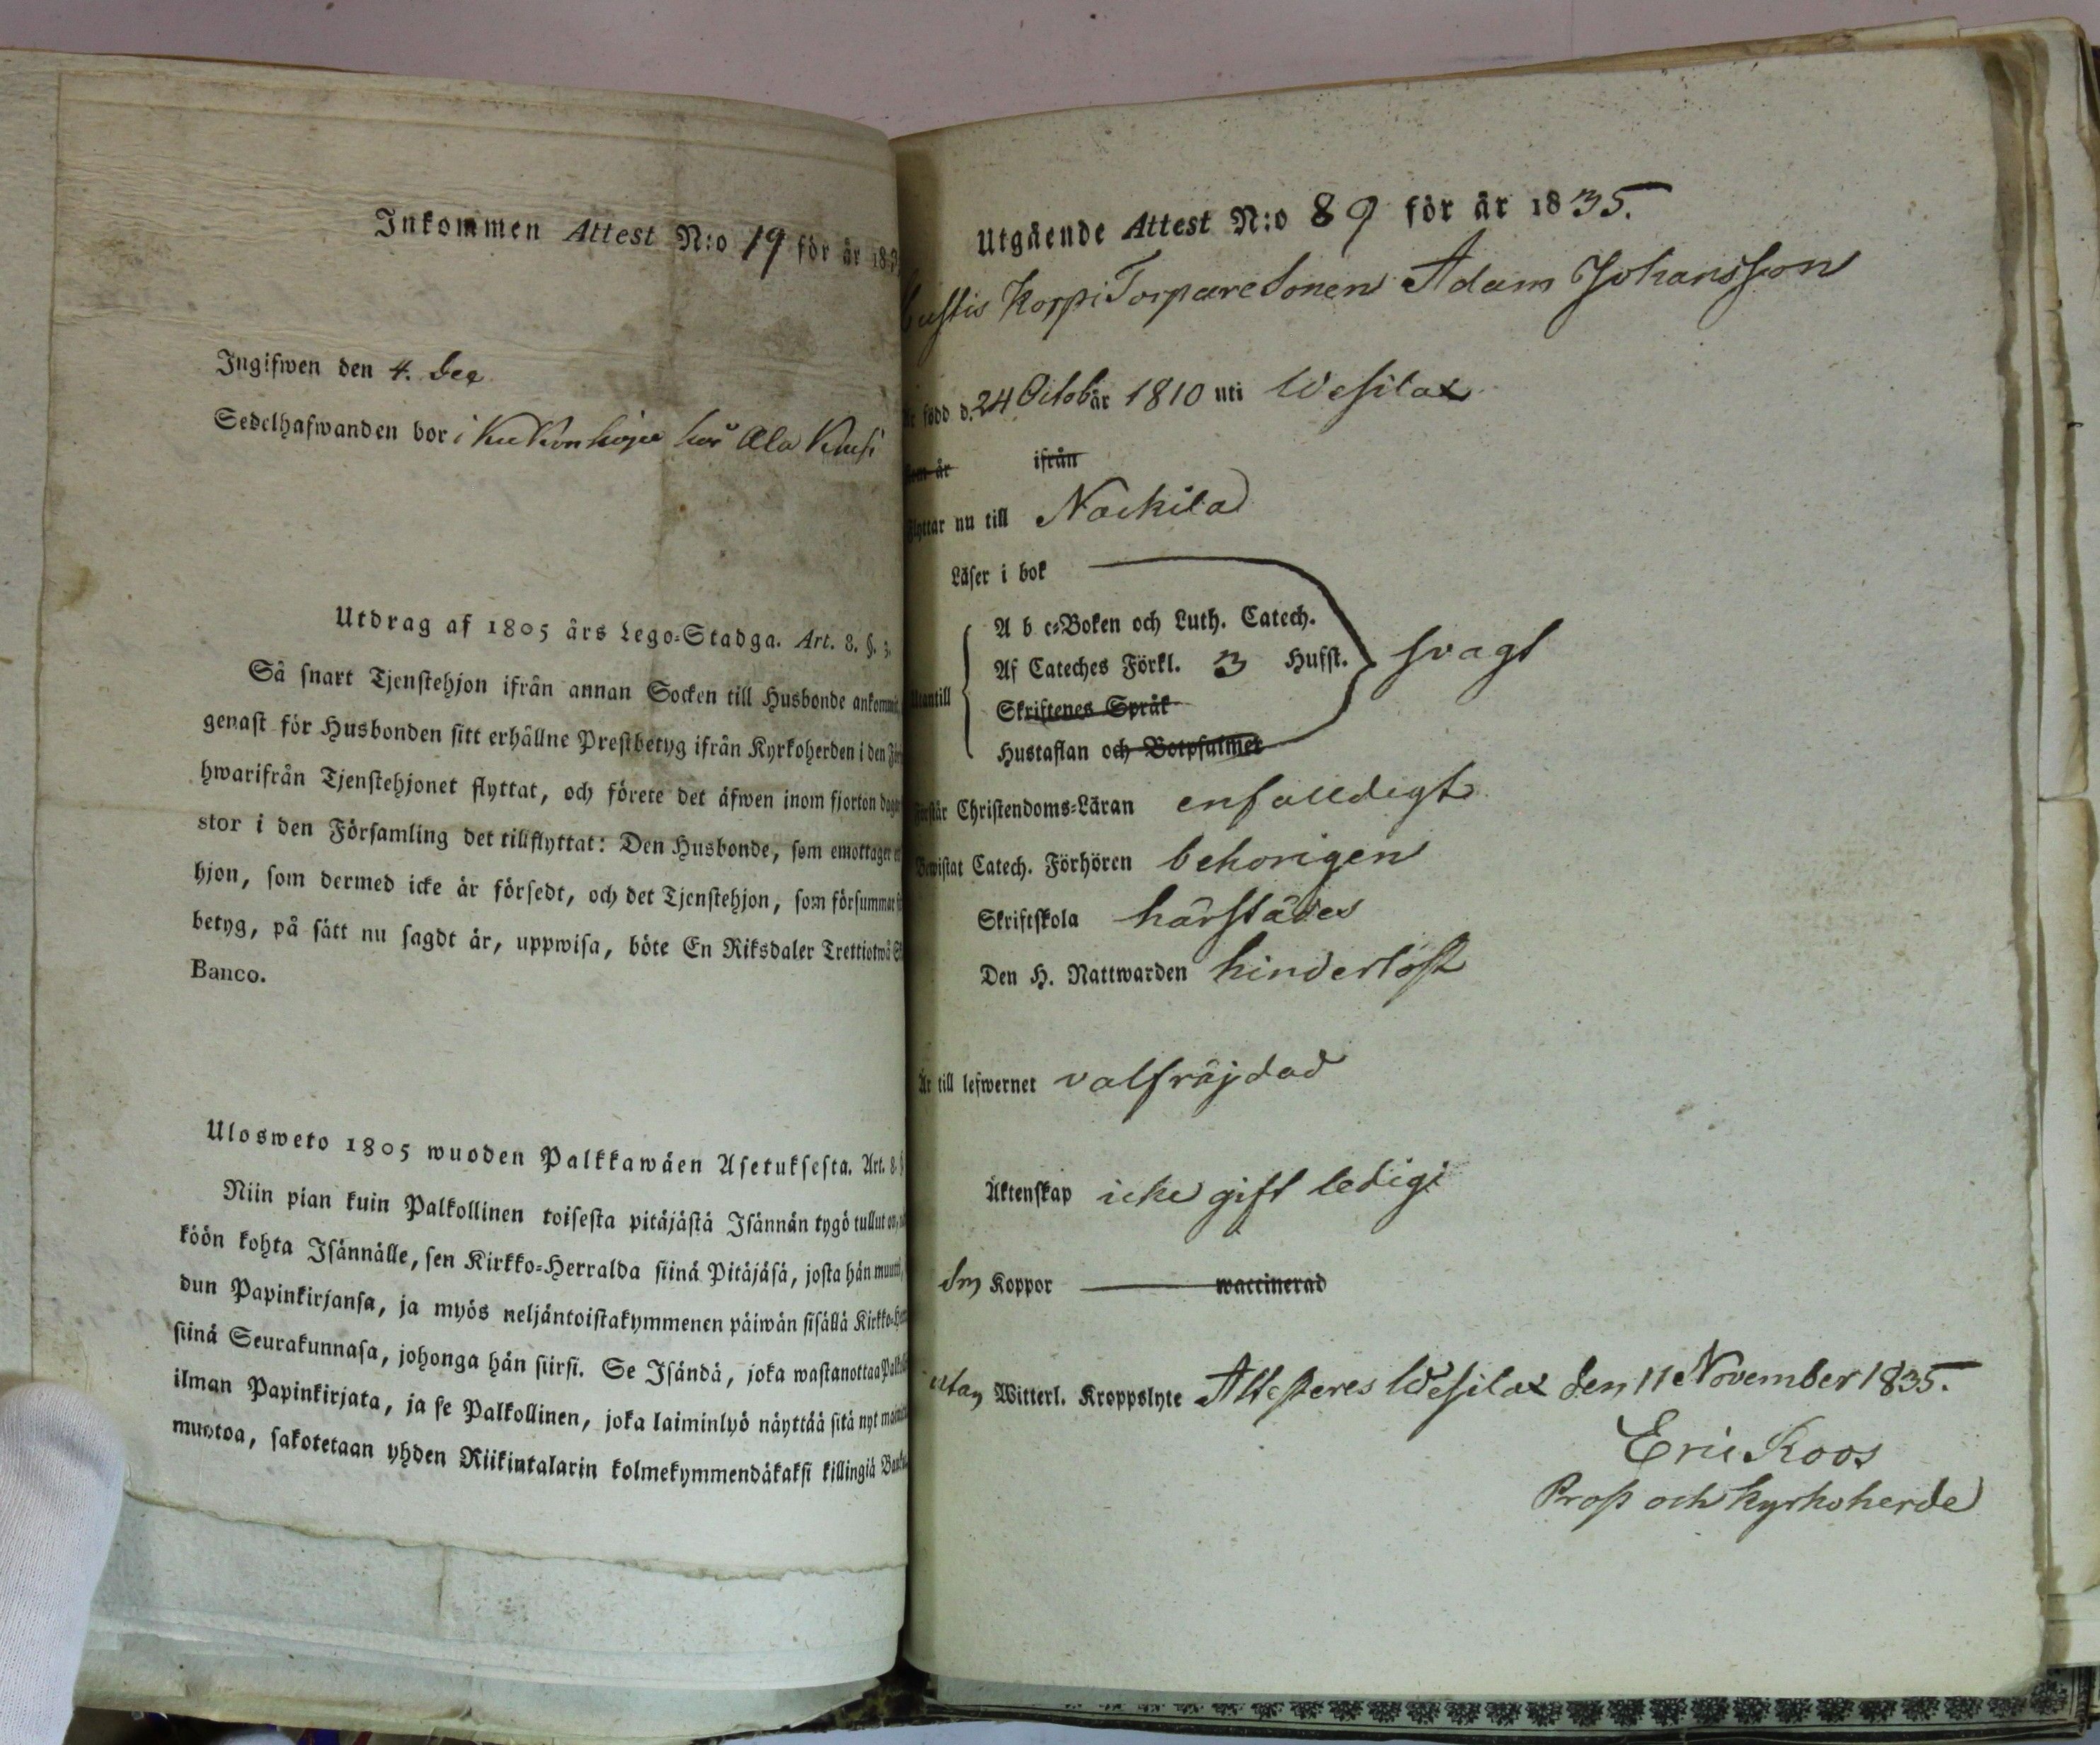 Inkommen Attest N:o 19 för år 18
Ingifwen den 4. Dec
Sedelhafwanden bor i hos Ala
Utdrag af 1805 års Lego-Stadga. Art. 8. §. 3.
Så snart Tjenstehjon ifrån annan Socken till Husbonde
genast för Husbonden sitt erhållne Prestbetyg ifrån Kyrkoherden i den
hwarifrån Tjenstehjonet flyttat, och förete det äfwen inom fjorton
stor i den Församling det tillflyttat: Den Husbonde, som emottager
hjon, som dermed icke är försedt, och det Tjenstehjon, som försummat
betyg, på sätt nu sagdt är, uppwisa, böte En Riksdaler Trettiotwå
Banco.
Ulosweto 1805 wuoden Palkkawäen Asetuksesta. Art. 8.
Niin pian kuin Palkollinen toisesta pitäjästä Isännän tygö tullut on,
köön kohta Isännälle, sen Kirkko-Herralda siinä Pitäjäsä, josta hän
dun Papinkirjansa, ja myös neljäntoistakymmenen päiwän sisällä
siinä Seurakunnasa, johonga hän siirsi. Se Isändä, joka wastanottaa
ilman Papinkirjata, ja se Palkollinen, joka laiminlyö näyttää sitä nyt
muotoa, sakotetaan yhden Riikintalarin kolmekymmendäkaksi killingiä
Utgående Attest N:o 89 för år 1835.
Korpi Torpare Sonen Adam Johansson
är född d. 24 Octob. år 1810 uti Wesilax
som år ifrån
Flyttar nu till Nackila
Läser i bok
A b c-Boken och Luth. Catech.
Af Cateches Förkl. 3 Hufst. svagt
Utantill
Skriftenes Språk
Hustaflan och Botpsalmer
Förstår Christendoms-Läran enfalldigt
Bewistat Catech. Förhören behörigen
Skriftskola härstädes
Den H. Nattwarden hinderlöst
Är till lefwernet välfräjdad
Äktenskap icke gift ledig
Koppor waccinerad
utan Witterl. Kroppslyte Attesteres Wesilax den 11 November 1835.
Eric Roos
Prost och Kyrkoherde